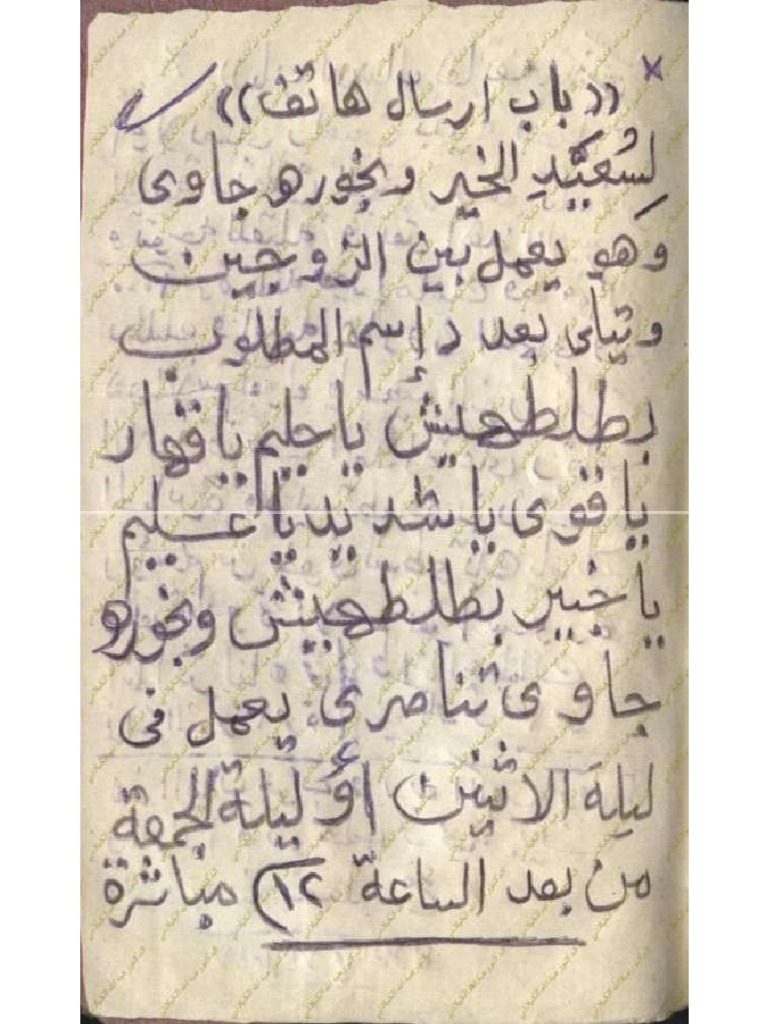 ((باب ارسال هاتف))
لِسُعَيِّدِ الخير وبخوره جاوى
وهو يعمل بين الزوجين
وتيلى بعدد إسم المطلوب
بطلطهيش يا حليم يا قهار
يا قوى يا شديد يا عليم
يا خبير بطلطهيش وبخوره
جاوى تناصرى يعمل فى
ليلة الاثنين أو ليلة الجمعة
من بعد الساعة ١٢ مباشرة